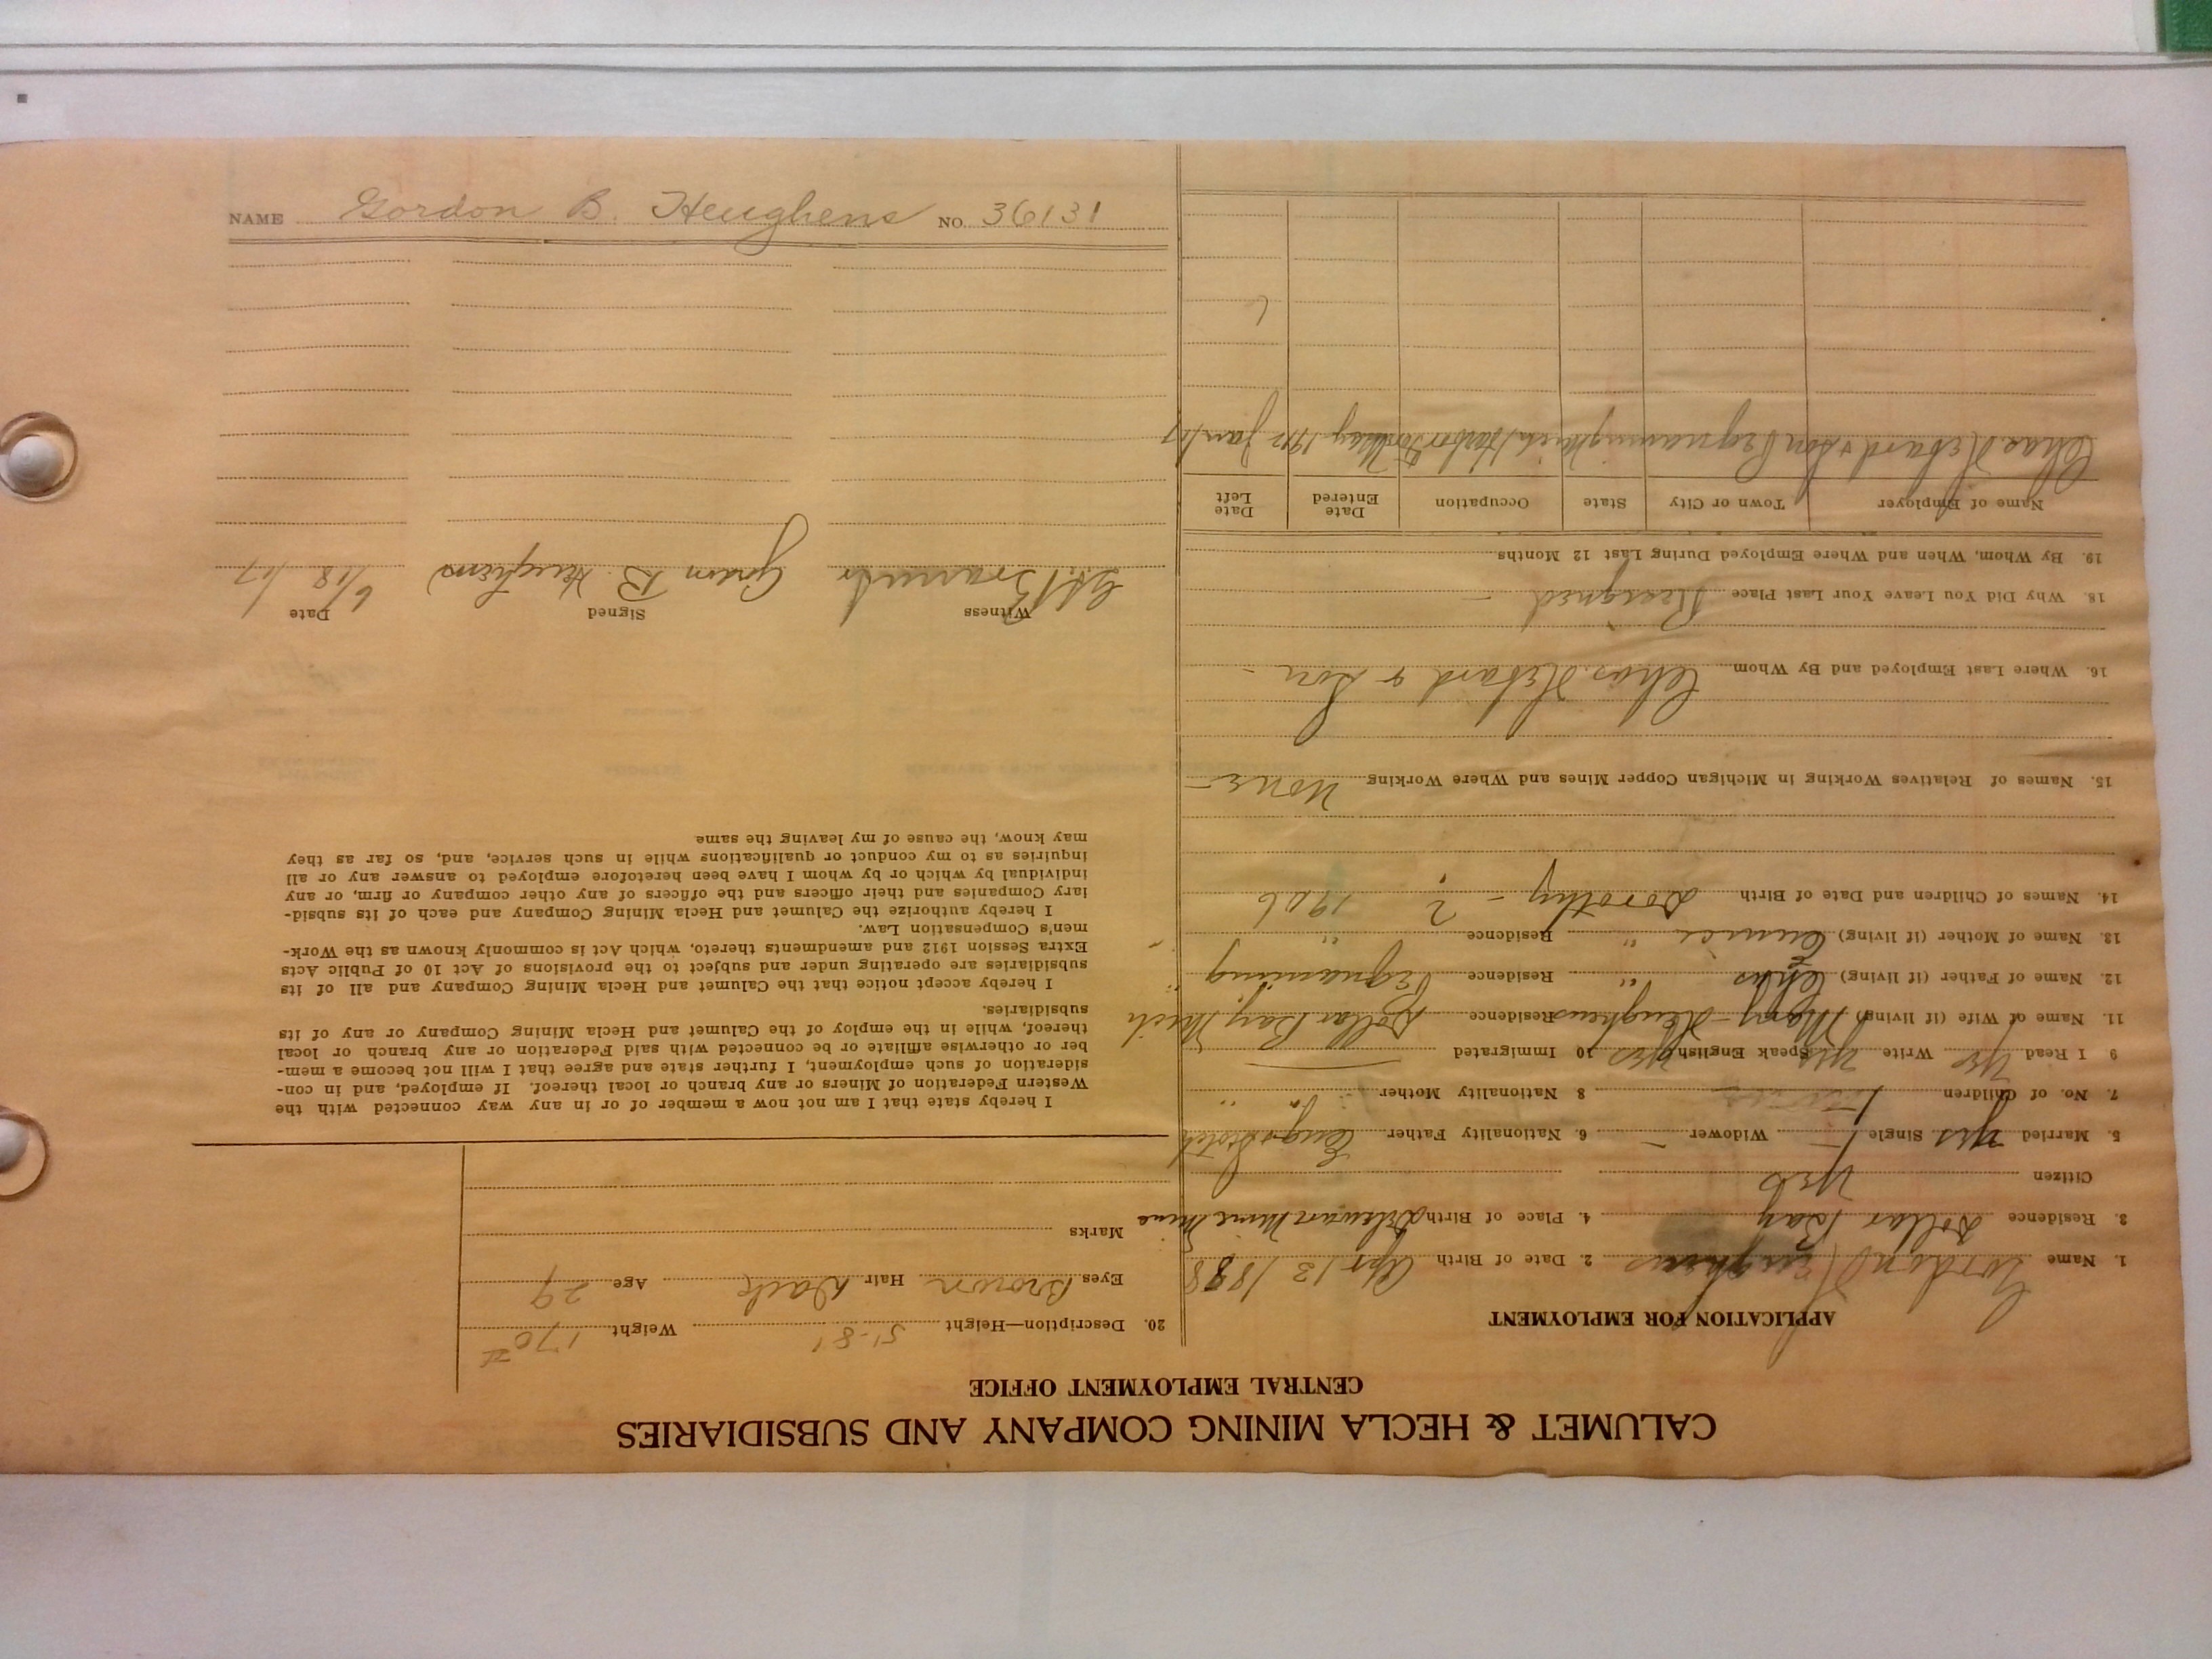 NAME Gordon B. Heughens NO. 36131
CALUMET & HECLA MINING COMPANY AND SUBSIDIARIES
CENTRAL EMPLOYMENT OFFICE
APPLICATION FOR EMPLOYMENT
1. Name Gordon Heughens 2. Date of Birth Apr 13 1888
3. Residence Dollar Bay 4. Place of Birth Delewari Mine Mine
Citizen Yes
5. Married Yes Single — Widower — 6. Nationality Father Eng & Scotch
7. No. of Children 1 8 Nationality Mother " "
9 I Read Yes Write Yes Speak English Yes 10 Immigrated —
11. Name of Wife (if living) Mary Heughens Residence Dollar Bay, Mich
12. Name of Father (if living) Chas " Residence Pequaming "
13. Name of Mother (if living) " Residence "
14. Names of Children and Date of Birth Dorothy - 2 1906
15. Names of Relatives Working in Michigan Copper Mines and Where Working None —
16. Where Last Employed and By Whom Chas. Hebard & Son –
18. Why Did You Leave Your Last Place Resigned —
19. By Whom, When and Where Employed During Last 12 Months
Name of Employer Town or City State Occupation Date Entered Date Left
Chas. Hebard & Son Pequaming Mich May 1912 Jan/17
20. Description—Height 5'-8" Weight 170#
Eyes Brown Hair Dark Age 29
Marks
I hereby state that I am not now a member of or in any way connected with the
Western Federation of Miners or any branch or local thereof. If employed, and in con-
sideration of such employment, I further state and agree that I will not become a mem-
ber or otherwise affiliate or be connected with said Federation or any branch or local
thereof, while in the employ of the Calumet and Hecla Mining Company or any of its
subsidiaries.
I hereby accept notice that the Calumet and Hecla Mining Company and all of its
subsidiaries are operating under and subject to the provisions of Act 10 of Public Acts
Extra Session 1912 and amendments thereto, which Act is commonly known as the Work-
men's Compensation Law.
I hereby authorize the Calumet and Hecla Mining Company and each of its subsid-
iary Companies and their officers and the officers of any other company or firm, or any
individual by which or by whom I have been heretofore employed to answer any or all
inquiries as to my conduct or qualifications while in such service, and, so far as they
may know, the cause of my leaving the same
Witness Signed Date
Gordon B. Heughens 6/18/17